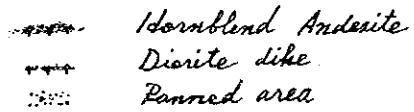 Hornblend Andesite
Diorite dike
Panned area